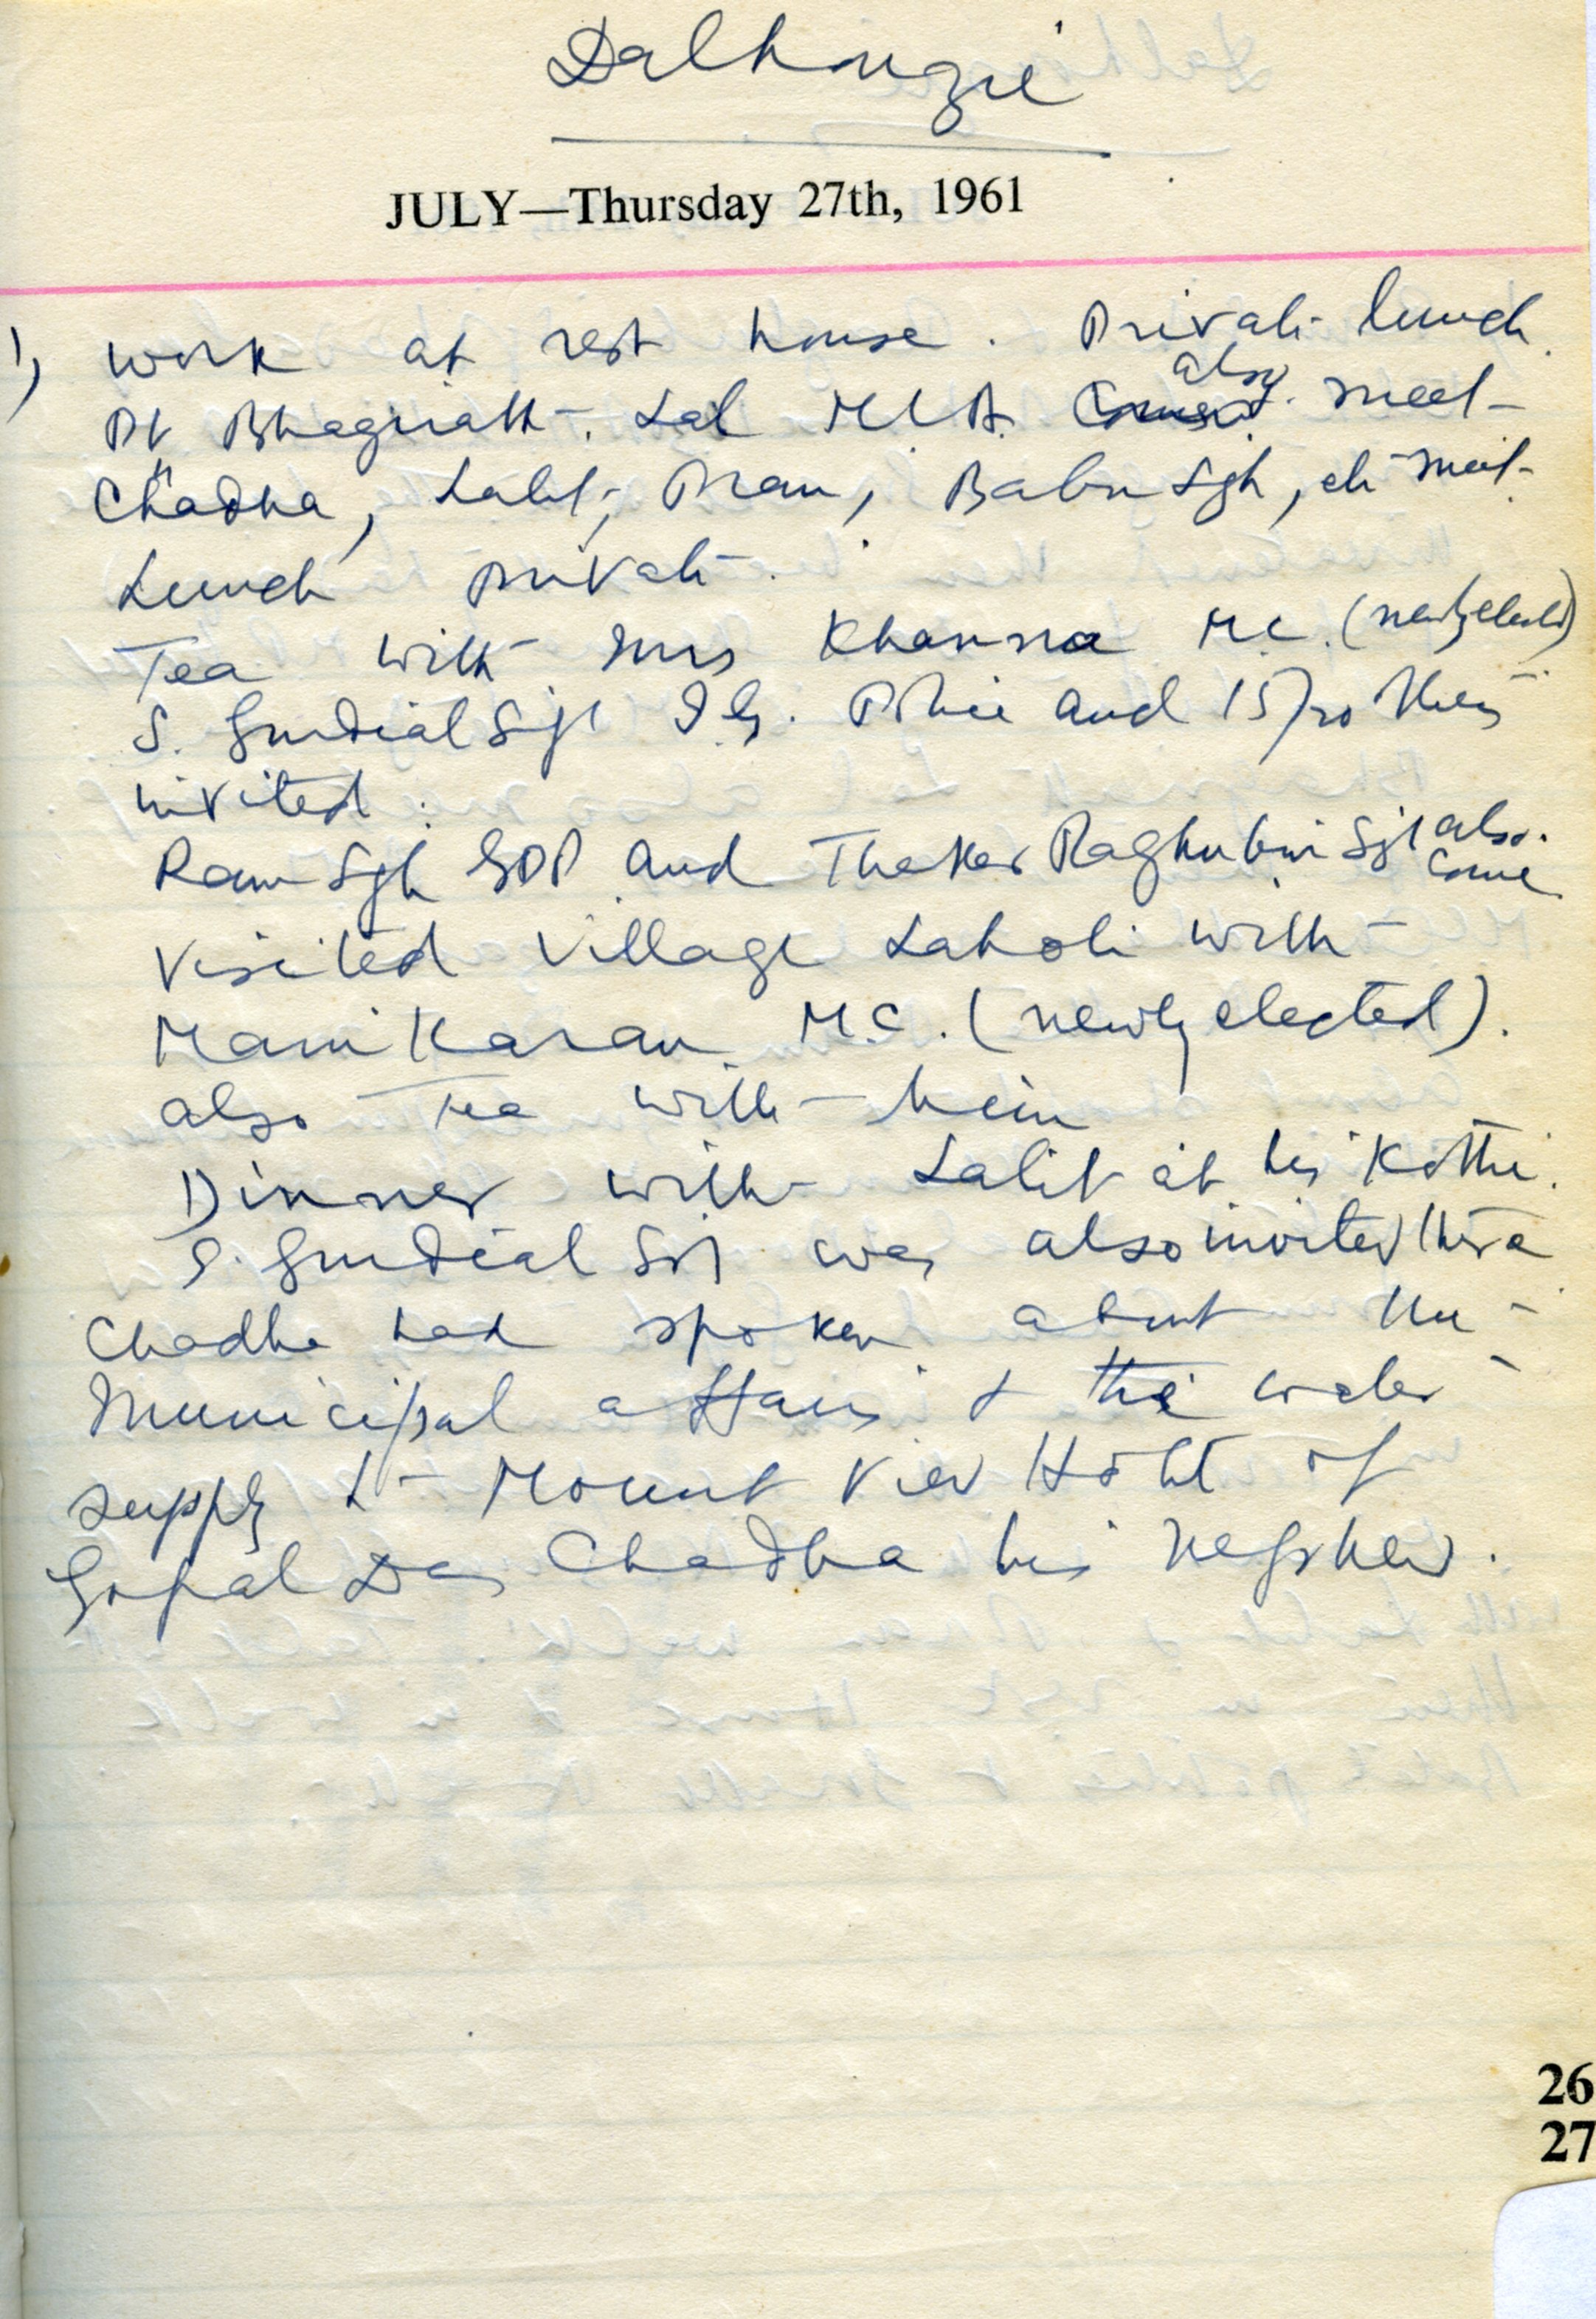 Dalhouzie
JULY—Thursday 27th, 1961
1) work at rest house. Private lunch.
Pt Bhagirath Lal MLA also meet
Chadha, Lalit, Pran, Babu Sgh, etc meet.
Lunch private.
Tea with Mrs Khanna M.C. (newly elected)
S. Gurdial Sgh I.G. Police and 15/20 others
invited.
Ram Sgh and Thaker Raghubir Sgh also.
come
Visited village Lakoli with
Mani Karan M.C. (newly elected).
also Tea with him
Dinner with Lalit at his Kothi.
S. Gurdial Sgh was also invited there
Chadha had spoken about the
Municipal affairs & the water
supply to Mount View Hotel of
Gopal Das Chadha his nephew.
26
27